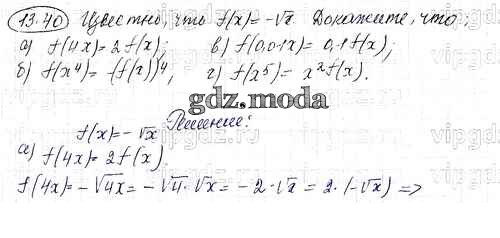 13.40 Известно, что f(x)=-√x. Докажите, что:
а) f(4x)=2f(x); в) f(0,01x)=0,1f(x);
б) f(x⁴)=-(f(x))⁴; г) f(x⁵)=x²f(x).
gdz.moda
Решение:
f(x)=-√x
а) f(4x)=2f(x).
f(4x)=-√4x=-√4·√x=-2·√x=2·(-√x) =>
vipgdz.ru